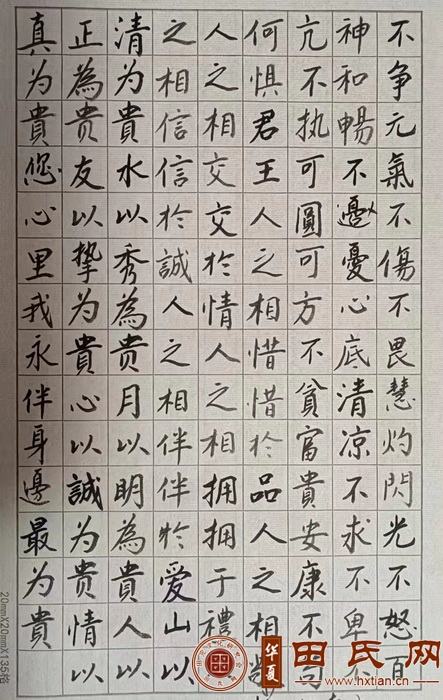 不争元氣不傷不畏慧灼閃光不怒百
神和暢不憂心底清凉不求不卑不
亢不执可圓可方不貧富貴安康不
何惧君王人之相惜惜於品人之相
人之相交交於情人之相拥拥于禮
之相信信於誠人之相伴伴於爱山以
清为貴水以秀為贵月以明為貴人以
正為贵友以挚为貴心以誠为贵情以
真为貴您心里我永伴身邊最为貴
20mmX20mmX135格
华夏
田氏网
www.hxtian.cn